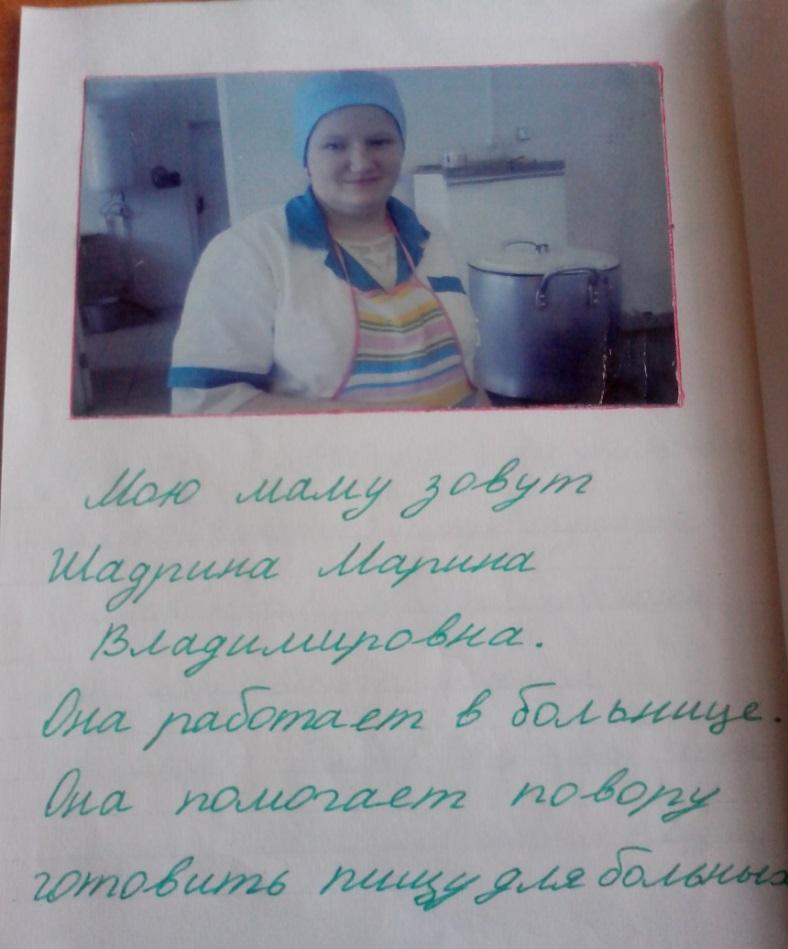 Мою маму зовут
Шадрина Марина
Владимировна.
Она работает в больнице.
Она помогает повору
готовить пищу для больных